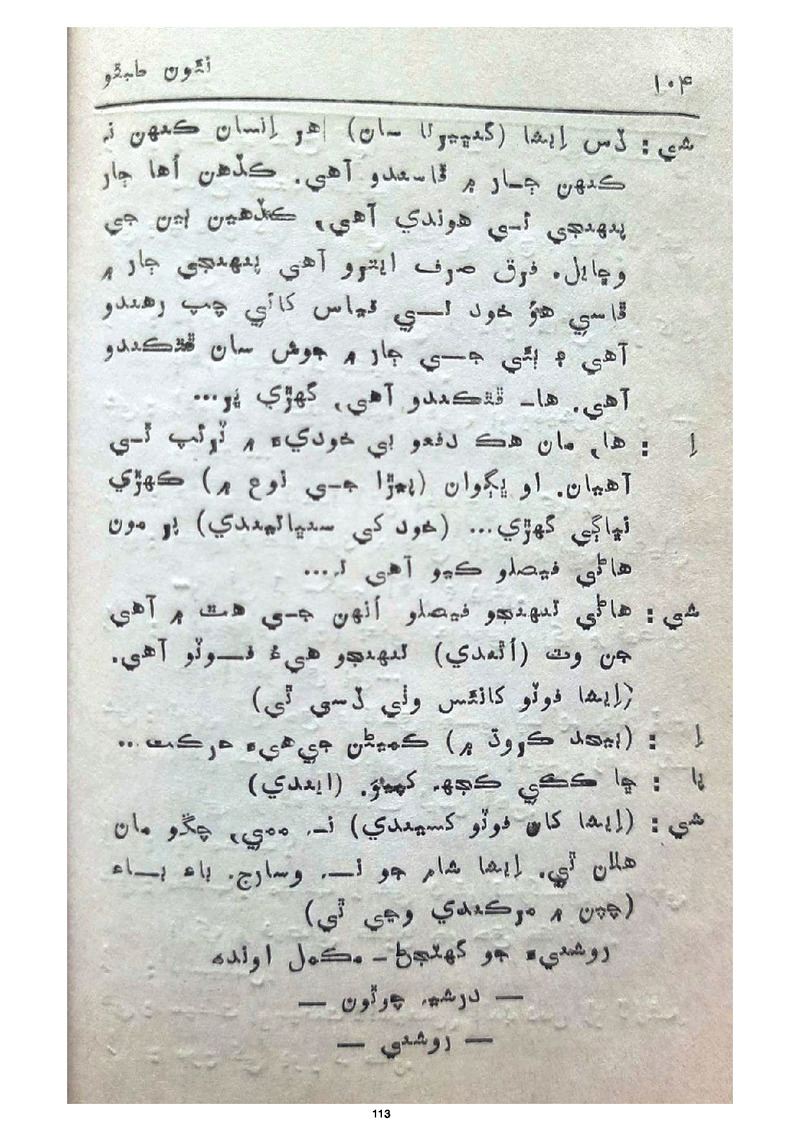 ۱۰۴ نئون طبقو
شي: ڏس اِيشا (گنڀيرتا سان) هر اِنسان ڪنهن نہ
ڪنهن ڄار ۾ ڦاسندو آهي. ڪڏهن اُها ڄار
پنهنجي ئي هوندي آهي، ڪڏهين ٻين جي
وڇايل. فرق صرف ايترو آهي پنهنجي ڄار ۾
ڦاسي هو خود ئي قياس کائي چپ رهندو
آهي ۽ ٻئي جي ڄار ۾ جوش سان ڦٿڪندو
آهي. ها- ڦٿڪندو آهي، گهڙي پر...
اِ : ها، مان هڪ دفعو ٻي خوديءَ ۾ ٽرئپ ٿي
آهيان. او ڀڳوان (پيڙا جي نوع ۾) ڪهڙي
نياڳي گهڙي... (خود کي سنڀاليندي) پر مون
هاڻي فيصلو ڪيو آهي تہ...
شي: هاڻي تنهنجو فيصلو اُنهن جي هٿ ۾ آهي
جن وٽ (اُٿندي) تنهنجو هيءُ فوٽو آهي.
(اِيشا فوٽو کانئس وٺي ڏسي ٿي)
اِ : (بيحد ڪروڌ ۾) ڪميڻن جي هيءَ حرڪت...
پا : ڇا ڪڪي ڪجهہ کپيئي. (ايندي)
شي: (اِيشا کان فوٽو کسيندي) نہ ممي، چڱو مان
هلان ٿي. اِيشا شام جو نہ وسارج. باءِ باءِ
(چپن ۾ مرڪندي وڃي ٿي)
روشنيءَ جو گهٽجڻ - مڪمل اونده
— درشيہ چوٿون —
— روشني —
113